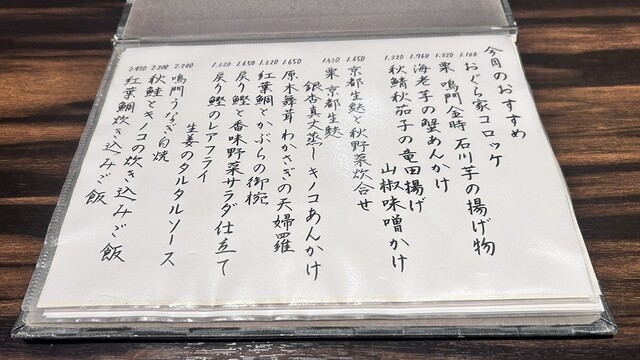 今月のおすすめ
おぐら家コロッケ
1.100
栗 鳴門金時 石川芋の揚げ物
1.320
海老芋の蟹あんかけ
1.760
秋鯖秋茄子の竜田揚げ
山椒味噌かけ
1.320
京都生麩と秋野菜炊合せ
1.650
栗 京都生麩
銀杏真丈蒸し キノコあんかけ
原木舞茸 わかさぎの天婦羅
1.650
紅葉鯛とかぶらの御椀
1.320
戻り鰹と香味野菜サラダ仕立て
1.650
戻り鰹のレアフライ
生姜のタルタルソース
鳴門うなぎ白焼
2.200
秋鮭とキノコの炊き込みご飯
2.200
紅葉鯛炊き込みご飯